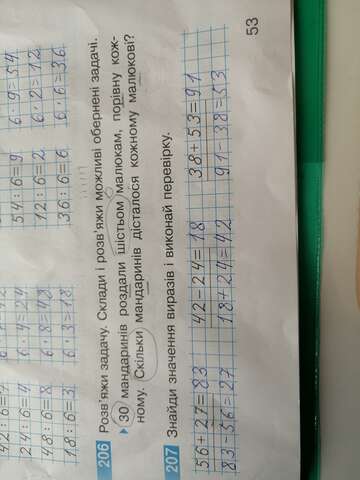 42:6=7
24:6=4 6·4=24 54:6=9 6·9=54
48:6=8 6·8=48 12:6=2 6·2=12
18:6=3 6·3=18 36:6=6 6·6=36
206 Розв'яжи задачу. Склади і розв'яжи можливі обернені задачі.
▸ 30 мандаринів роздали шістьом малюкам, порівну кож-
ному. Скільки мандаринів дісталося кожному малюкові?
207 Знайди значення виразів і виконай перевірку.
56+27=83 42-24=18 38+53=91
83-56=27 18+24=42 91-38=53
53